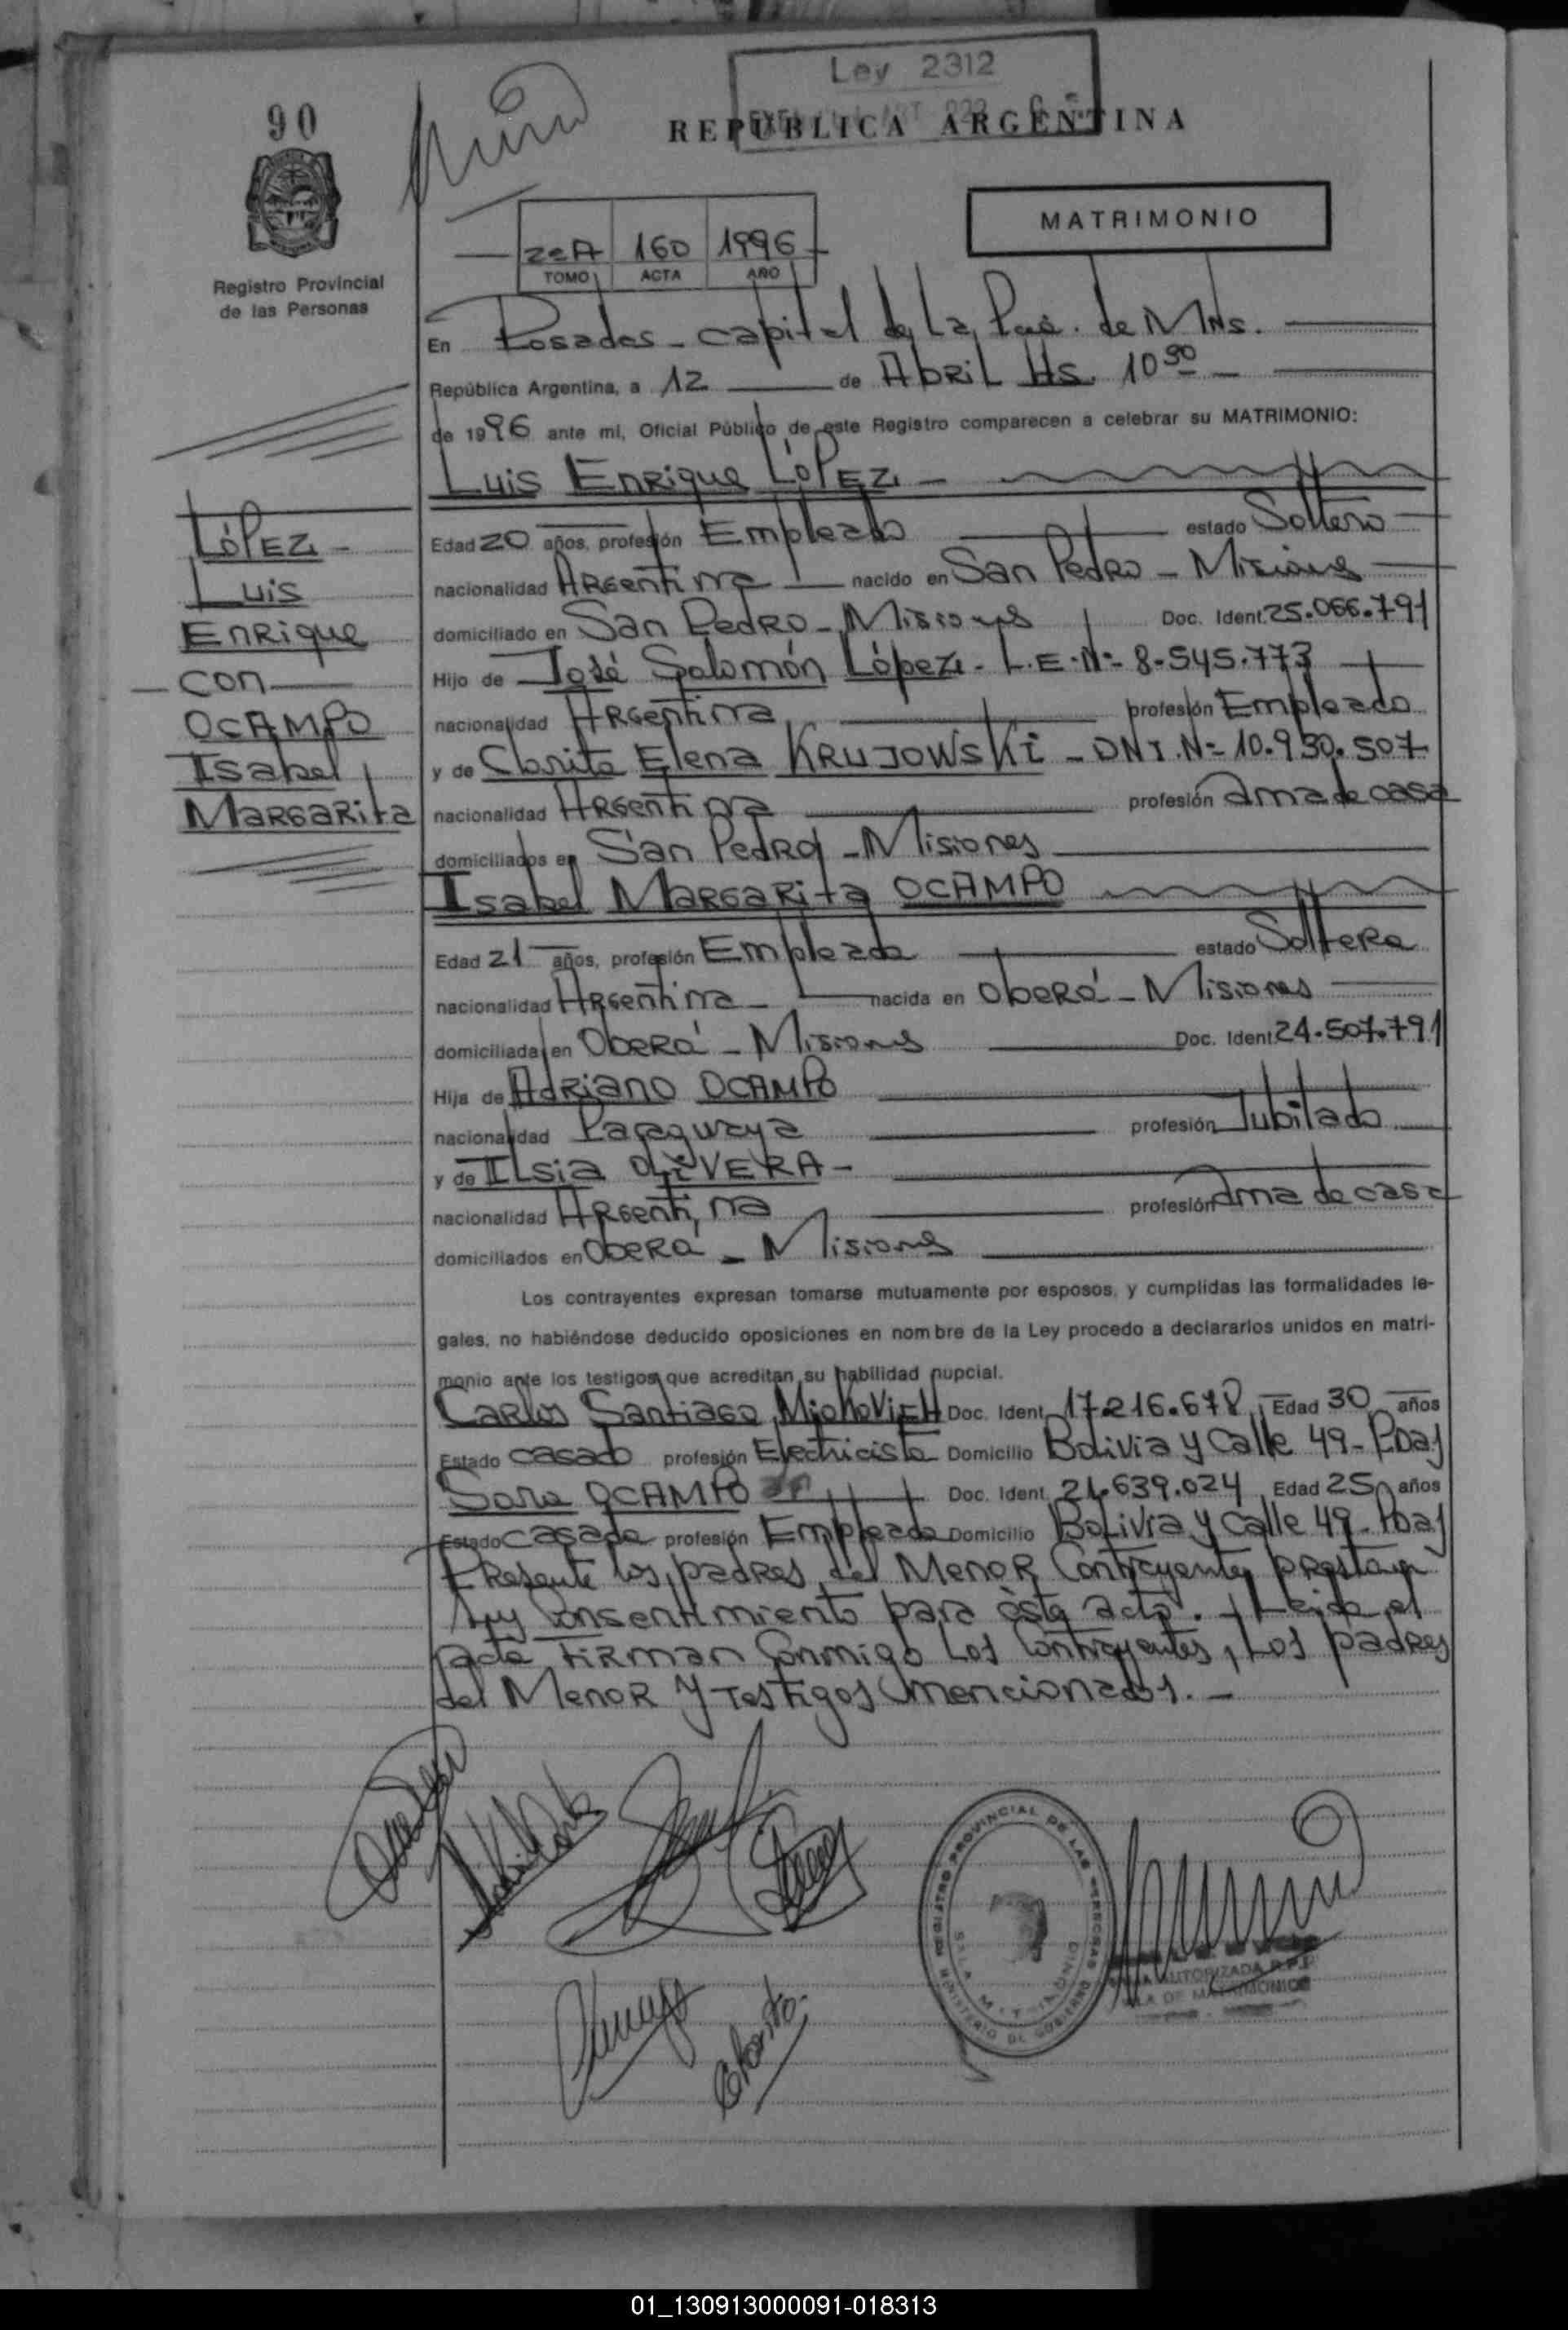 Ley 2312
90
REPUBLICA ARGENTINA
MATRIMONIO
2eA 160 1996
TOMO ACTA AÑO
Registro Provincial
de las Personas
En Posadas - capital de La Pcia. de Mns.
República Argentina, a 12 de Abril Hs. 10 30
de 1996 ante mi, Oficial Público de este Registro comparecen a celebrar su MATRIMONIO:
Luis Enrique LÓPEZ -
Edad 20 años, profesión Empleado estado Soltero
nacionalidad Argentina nacido en San Pedro - Misiones
domiciliado en San Pedro - Misiones Doc. Ident. 25.066.791
Hijo de José Salomón López - L.E.Nº 8.545.773
nacionalidad Argentina profesión Empleado
y de Clarita Elena KRUJOWSKI - DNI.Nº 10.930.507
nacionalidad Argentina profesión Ama de casa
domiciliados en San Pedro - Misiones
LÓPEZ -
Luis
Enrique
con
OCAMPO
Isabel
Margarita
Isabel Margarita OCAMPO
Edad 21 años, profesión Empleada estado Soltera
nacionalidad Argentina - nacida en Oberá - Misiones
domiciliada en Oberá - Misiones Doc. Ident 24.507.791
Hija de Adriano OCAMPO
nacionalidad Paraguaya profesión Jubilado
y de ILsia OLIVERA -
nacionalidad Argentina profesión Ama de casa
domiciliados en Oberá - Misiones
Los contrayentes expresan tomarse mutuamente por esposos, y cumplidas las formalidades le-
gales, no habiéndose deducido oposiciones en nombre de la Ley procedo a declararlos unidos en matri-
monio ante los testigos que acreditan su habilidad nupcial.
Carlos Santiago MioKovicH Doc. Ident. 17.216.678 Edad 30 años
Estado casado profesión Electricista Domicilio Bolivia y Calle 49 - Pdas
Sara OCAMPO Doc. Ident. 21.639.024 Edad 25 años
Estado casada profesión Empleada Domicilio Bolivia y Calle 49 - Pdas
Presente los padres del Menor Contrayente, prestan
su Consentimiento para éste acto. - Leida el
acta firman Conmigo Los Contrayentes, Los padres
del Menor y Testigos mencionados. -
REGISTRO PROVINCIAL DE LAS PERSONAS
MINISTERIO DE GOBIERNO
AUTORIZADA R.P.P.
SALA DE MATRIMONIOS
Clarita
01_130913000091-018313